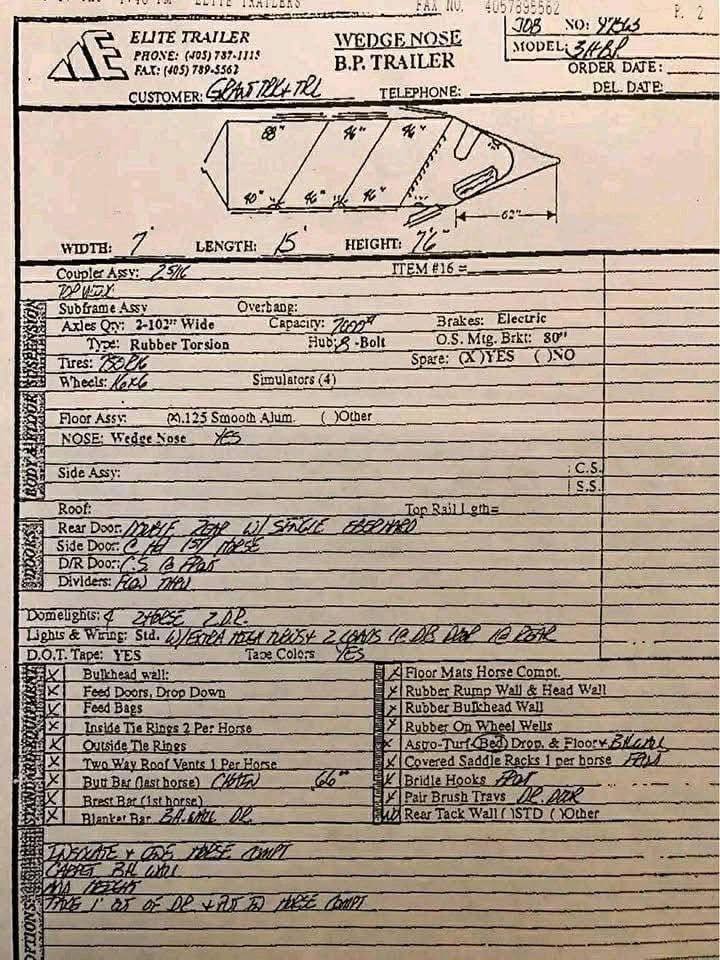 ELITE TRAILERS FAX NO. 4057895562 P. 2
ELITE TRAILER
PHONE: (405) 787-1115
FAX: (405) 789-5562
WEDGE NOSE
B.P. TRAILER
JOB NO:
MODEL: 3HBP
ORDER DATE:
DEL. DATE:
CUSTOMER: GRANT TRK + TRL TELEPHONE:
88" 46" 46"
40" 46" 46"
62"
WIDTH: 7' LENGTH: 15' HEIGHT: 7'6"
Coupler Assy: 2 5/16 ITEM #16 =
Subframe Assy Overbang:
Axles Qty: 2-102" Wide Capacity: 7000# Brakes: Electric
Type: Rubber Torsion Hub: 8-Bolt O.S. Mtg. Brkt: 80"
Tires: 750R16 Spare: (X)YES ( )NO
Wheels: 16x6 Simulators (4)
Floor Assy: (X).125 Smooth Alum. ( )Other
NOSE: Wedge Nose YES
Side Assy: C.S.
S.S.
Roof: Top Rail Lgth=
Rear Door: DOUBLE REAR W/ SINGLE EBERHARD
Side Door: @ HD 1ST HORSE
D/R Door: C.S @ FRONT
Dividers: FLOW THRU
Domelights: 4 2 HORSE 2 D.R.
Lights & Wiring: Std. W/EXTRA HIGH TURNS + 2 LOADS 1@ DR DOOR 1@ REAR
D.O.T. Tape: YES Tape Colors YES
X Bulkhead wall:
X Feed Doors, Drop Down
X Feed Bags
X Inside Tie Rings 2 Per Horse
X Outside Tie Rings
X Two Way Roof Vents 1 Per Horse
X Butt Bar (last horse) CHAIN 66"
Brest Bar (1st horse)
X Blanket Bar B.H. WALL DR.
X Floor Mats Horse Compt.
X Rubber Rump Wall & Head Wall
X Rubber Bulkhead Wall
X Rubber On Wheel Wells
X Astro-Turf (Bed) Drop. & Floor + B.H. WALL
X Covered Saddle Racks 1 per horse
X Bridle Hooks
X Pair Brush Trays DR. DOOR
NO Rear Tack Wall ( )STD ( )Other
STANDARD EQUIPMENT
DOORS
OPTIONS
INSULATE + LINE HORSE COMPT
CARPET B.H. WALL
MID HEIGHT
TAKE 1' OUT OF DR. + PUT IN HORSE COMPT